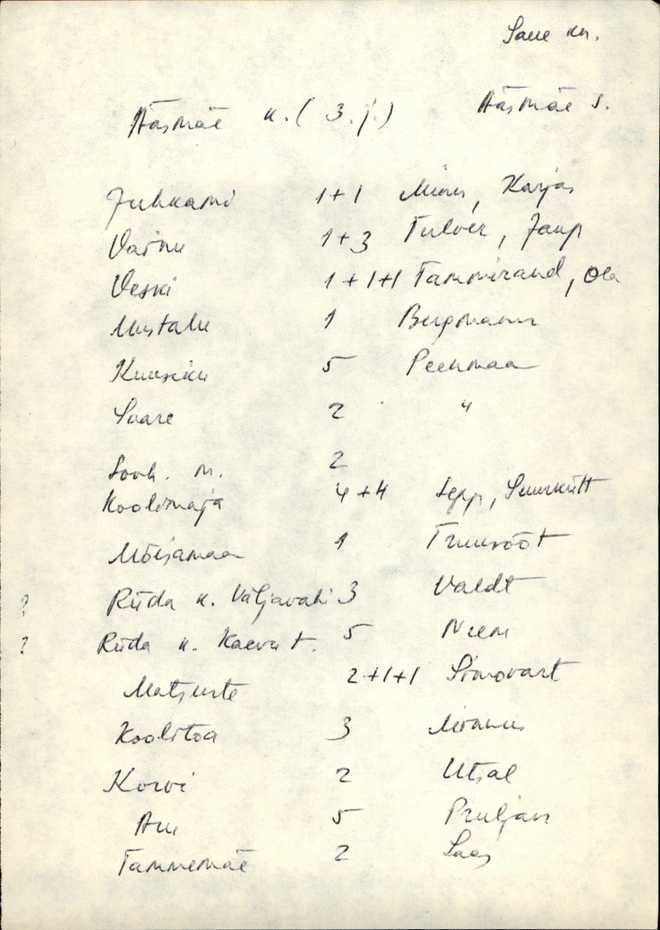 Saue kn.
Ääsmäe k. (3. j.) Ääsmäe s.
Juhkami 1+1 Karjas
Vainu 1+3 Tulver, Jaup
Veski 1+1+1 Tammirand, Ola
Mustalu 1 Bergmann
Kuusiku 5 Peenmaa
Saare 2 "
Sooh. m. 2
Koolimaja 4+4 Sepp, Suurkütt
Mõisamaa 1 Truusööt
? Riida k. Väljavahi 3 Valdt
? Riida k. Kaevu t. 5 Neem
Matsuste 2+1+1 Simovart
Koolitoa 3
Korvi 2 Utsal
Aru 5 Pruljan
Tammemäe 2 Saas